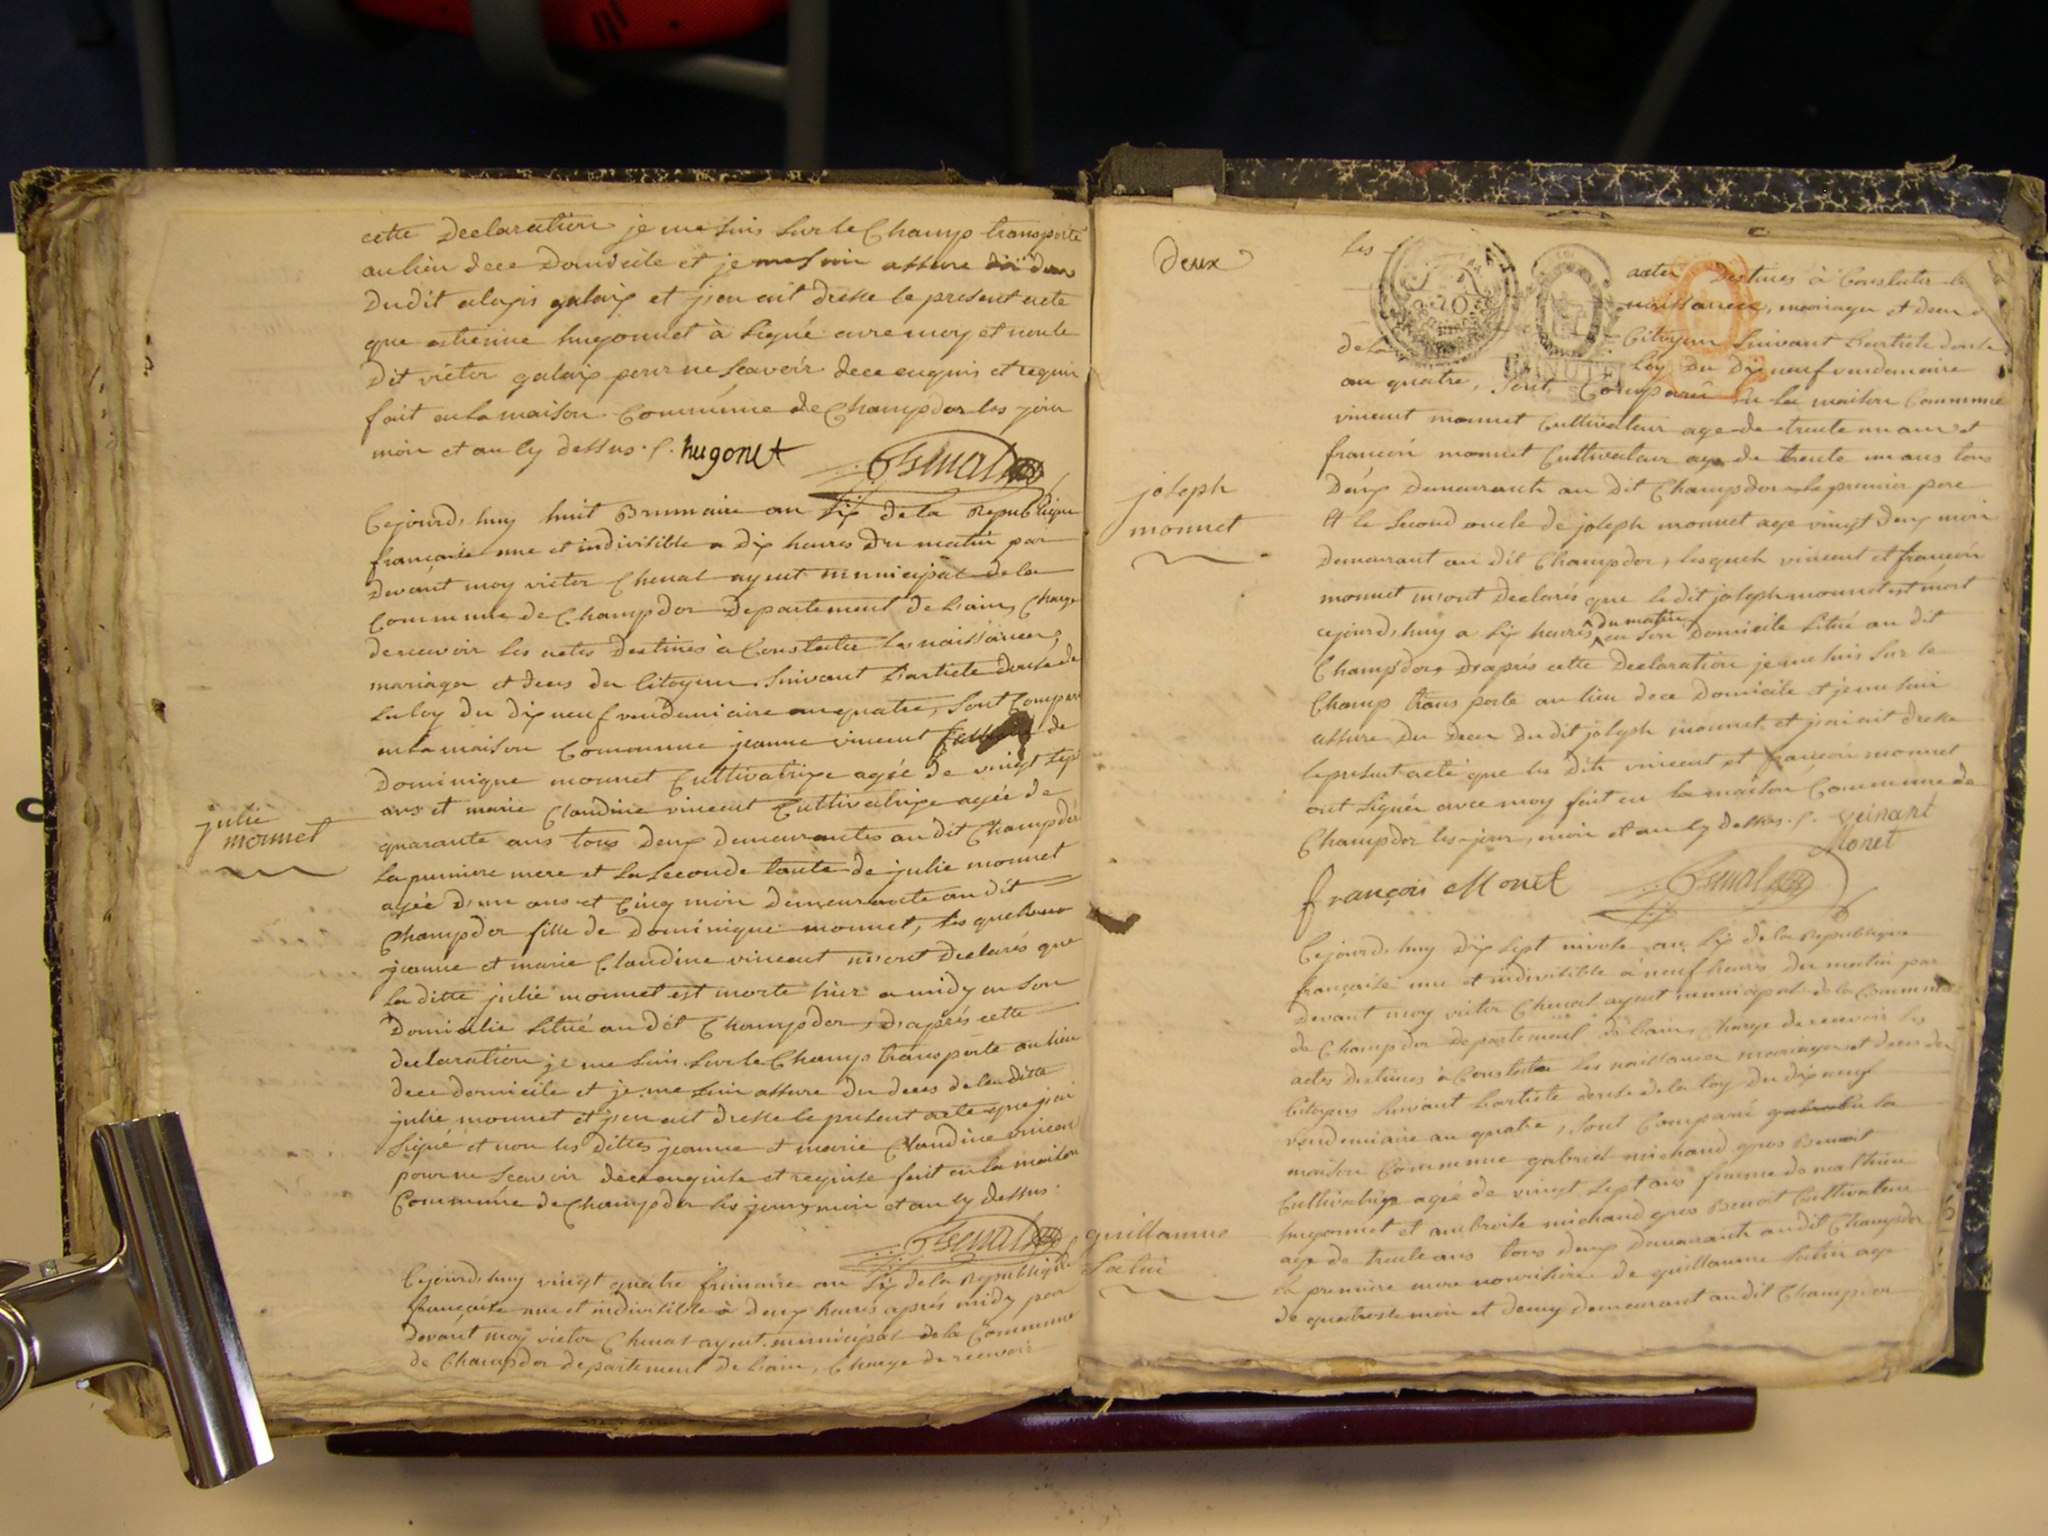 cette Declaration je me suis sur le Champ transporté
au lieu de ce Domicile et je me suis assure du deces
Dudit alexis galaix et j'en ait dresse le present acte
que etienne hugonnet à signé avec moy et non le
Dit victor galaix pour ne scavoir de ce enquis et requis
fait en la maison Commune de Champdor les jour
mois et an cy dessus ./. hugonet
Chenal
Cejourd,huy huit Brumaire an six de la Republique
française une et indivisible a dix heures du matin par
devant moy victor Chenal agent municipal de la
Commune de Champdor Departement de L'ain, Charge
de recevoir les actes Destines à Constater les naissances,
mariages et deces des Citoyens, suivant L'article douse de
La loy du dix neuf vendemiaire an quatre, sont Comparu
en la maison Commune jeanne vincent femme de
Dominique monnet Cultivatrixe agée de vingt sept
ans et marie Claudine vincent Cultivatrixe agée de
quarante ans tous Deux demeurantes au dit Champdor
La premiere mere et La seconde tante de julie monnet
agée d'un ans et Cinq mois demeurante au dit
Champdor fille de Dominique monnet, Les quelles
jeanne et marie Claudine vincent m'ont Declarés que
La ditte julie monnet est morte hier a midy en son
Domicilie situé au dit Champdor, d'après cette
declaration je me suis sur le Champ transporte au lieu
de ce domicile et je me suis assure du deces de la ditte
julie monnet et j'en ait dresse le present acte que j'ai
signé et non les dittes jeanne et marie Claudine vincent
pour ne scavoir de ce enquise et requise fait en la maison
Commune de Champdor les jour, mois et an cy dessus.
Chenal
julie
monnet
Cejourd,huy vingt quatre frimaire an six de la Republique
française une et indivisible a deux heures après midy par
devant moy victor Chenal agent municipal de la Commune
de Champdor departement de L'ain, Charge de recevoir
Deux
les actes Destines à Constater les
naissances, mariages et deces
de la Citoyens suivant L'article douse
Loy du dix neuf vendemiaire
an quatre, sont Comparu en la maison Commune
vincent monnet Cultivateur age de trente un ans et
françois monnet Cultivateur age de trente un ans tous
Deux Demeurants au Dit Champdor le premier pere
et le second oncle de joseph monnet age vingt deux mois
demeurant au dit Champdor, lesquels vincent et françois
monnet m'ont Declarés que le dit joseph monnet est mort
cejourd,huy a six heures du matin en son Domicile situé au dit
Champdor, D'après cette Declaration je me suis sur le
Champ transporte au lieu de ce Domicile et je me suis
assure du Deces du dit joseph monnet et j'ai ait dresse
le present acte que les dits vincent et françois monnet
ont signés avec moy fait en la maison Commune de
Champdor les jour, mois et an cy dessus ./. veinant
Monet
françois Monet Chenal
joseph
monnet
Cejourd,huy dix sept nivose an six de la Republique
française une et indivisible à neuf heures du matin par
devant moy victor Chenal agent municipal de la Commune
de Champdor Departement de L'ain, Charge de recevoir les
actes destines à Constater les naissances mariages et deces des
Citoyens suivant L'article douse de la loy du dix neuf
vendemiaire an quatre, sont Comparu en la
maison Commune gabriel michaud gros Benoit
Cultivatrixe agée de vingt sept ans femme de mathieu
hugonnet et ambroise michaud gros Benoit Cultivateur
age de trente ans tous deux demeurants au dit Champdor
La premiere mere nourisiere de guillaume age
de quatorse mois et demy demeurant au dit Champdor
guillaume